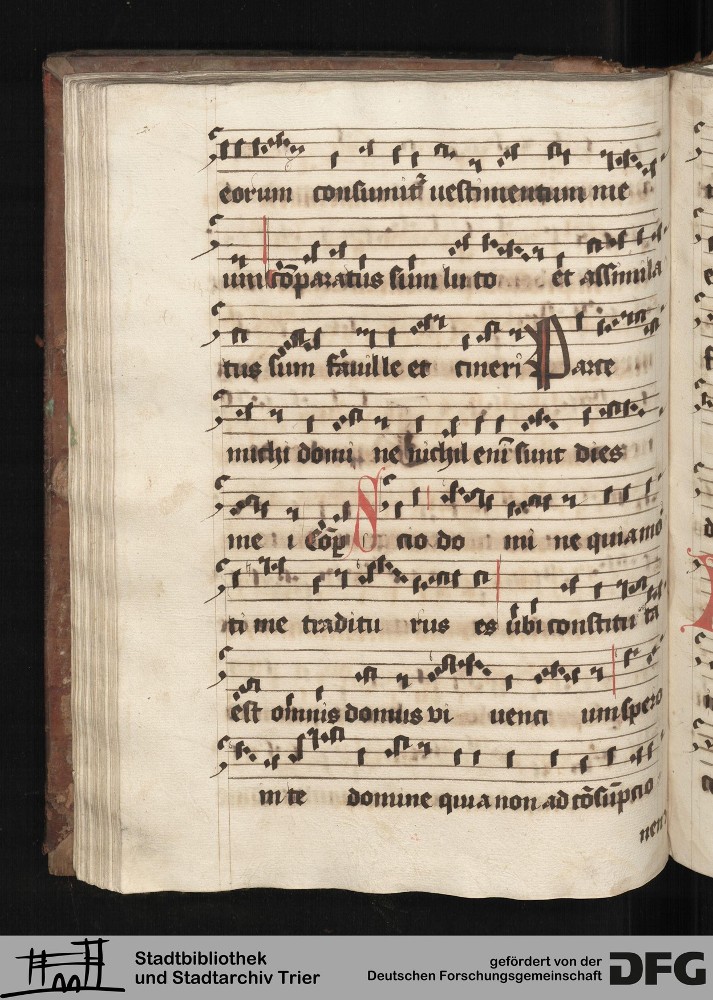 eorum consumit᷑ uestimentum me
um cōparatus sum luto et assimila
tus sum fauille et cineri Parce
michi domi ne nichil enī sunt dies
me i Cōp Scio do mi ne quia mo
ti me traditu rus es ubi constitu ta
est omnis domus vi uenti um spero
in te domine quia non ad cōsūpcio
nem
Stadtbibliothek
und Stadtarchiv Trier
gefördert von der
Deutschen Forschungsgemeinschaft
DFG